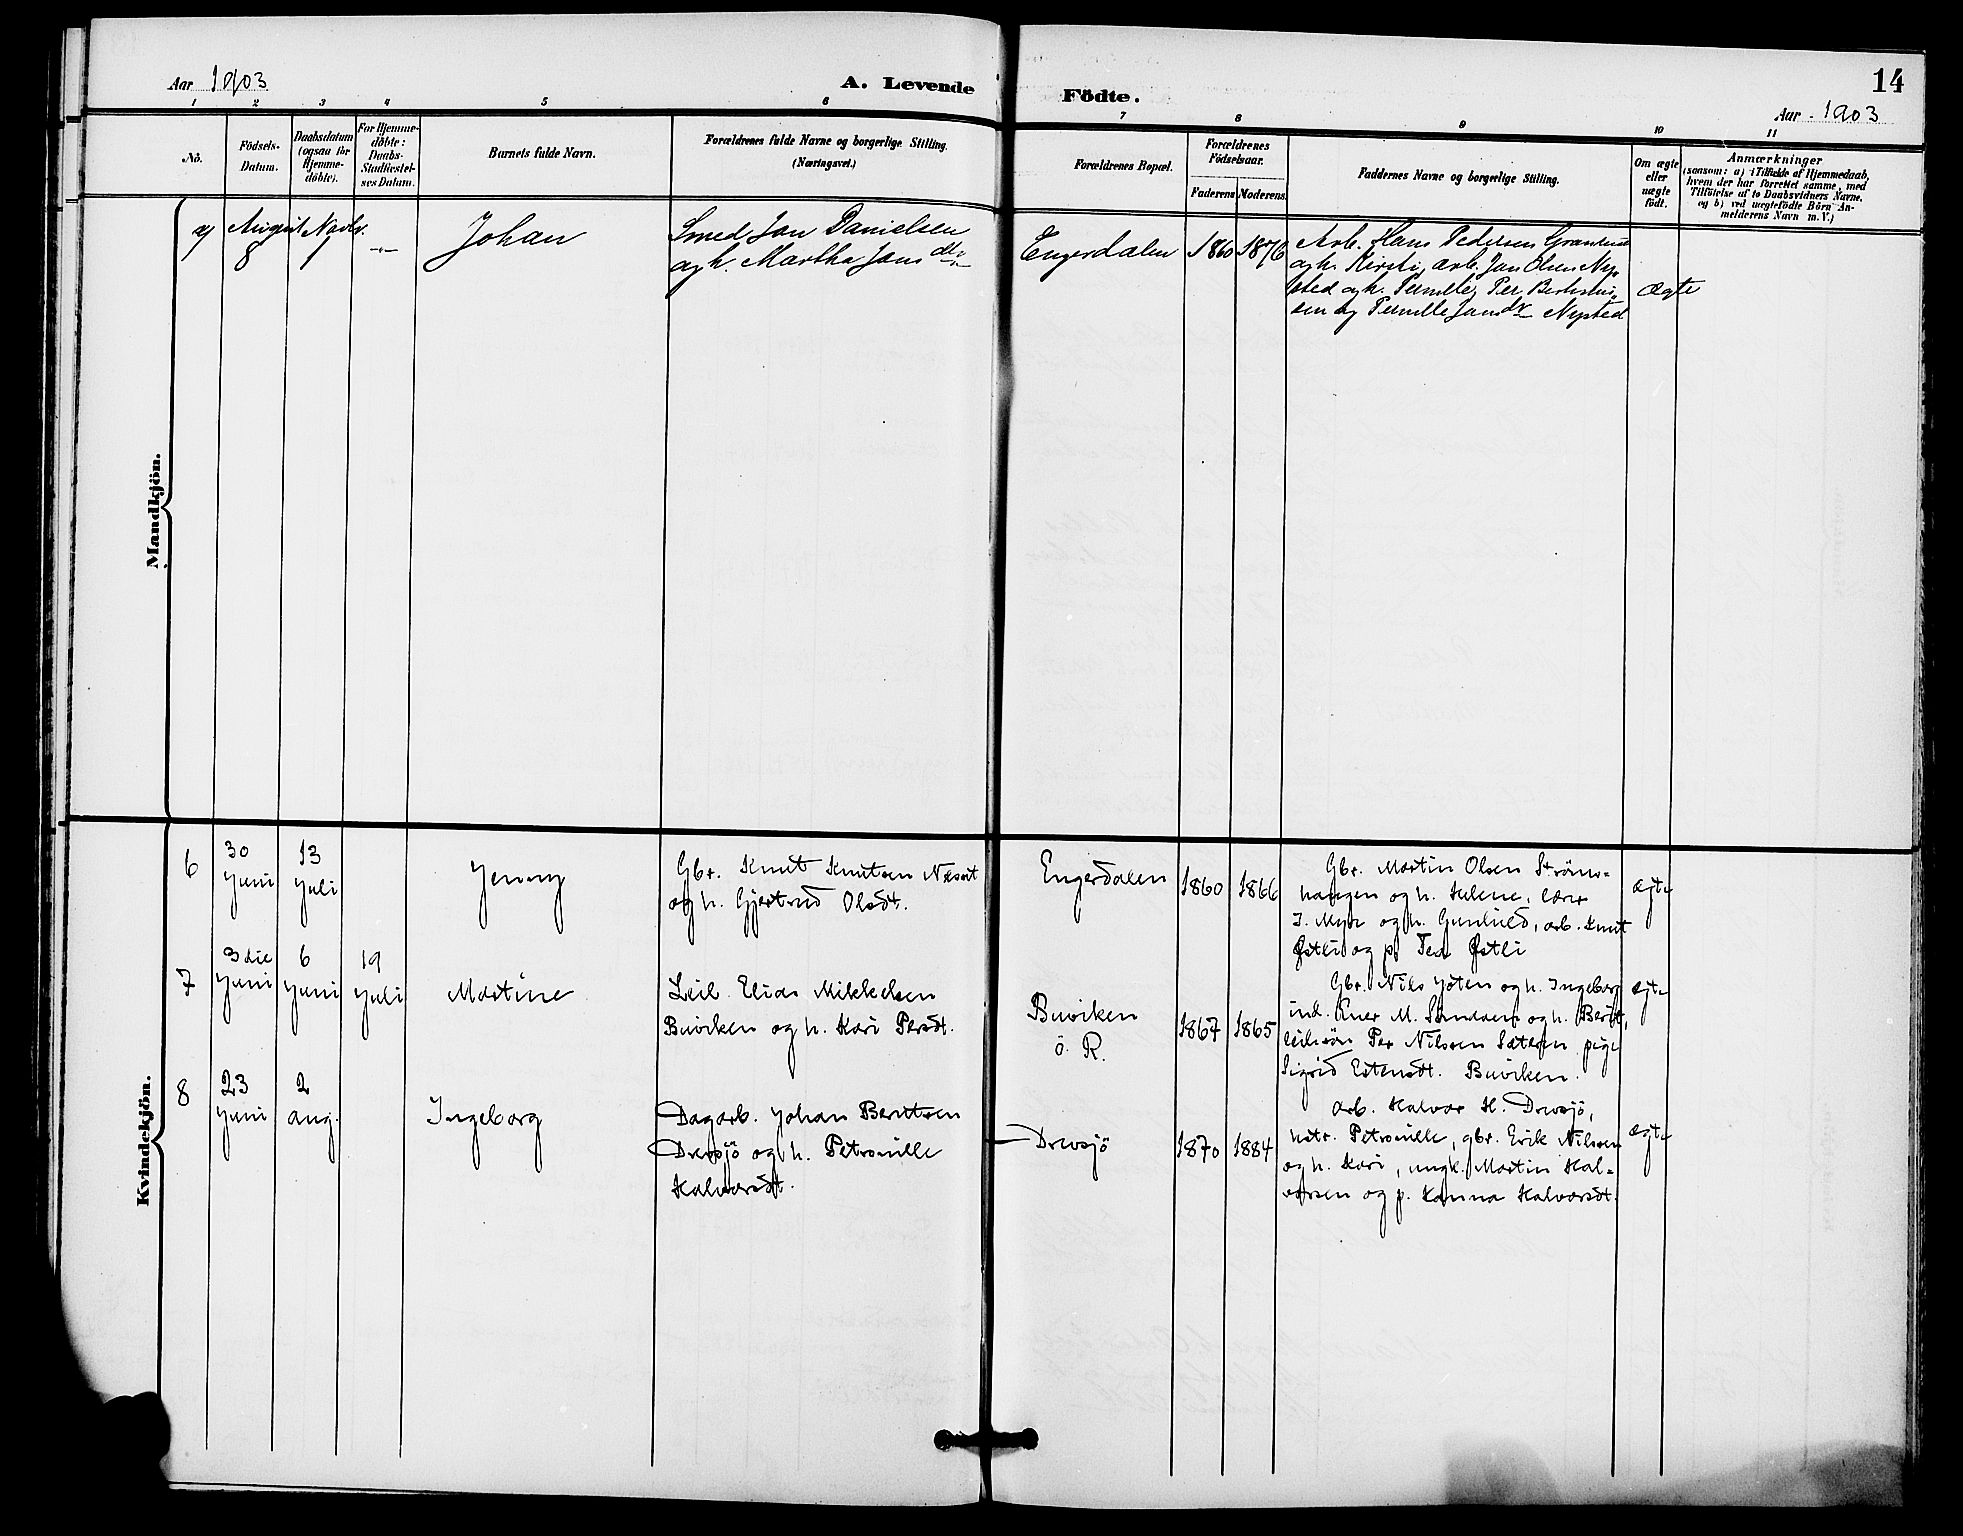 Aar 1903
A. Levende
Födte.
14
Aar 1903
1 2 3 4 5 6 7 8 9 10 11
No.
Födsels-
Datum.
Daabsdatum
(ogsaa for
Hjemme-
döbte).
For Hjemme-
döbte:
Daabs-
Stadfæstel-
ses Datum.
Barnets fulde Navn.
Forældrenes fulde Navne og borgerlige Stilling.
(Næringsvei.)
Forældrenes Bopæl.
Forældrenes
Födselsaar.
Faderens
Moderens
Faddernes Navne og borgerlige Stilling.
Om ægte
eller
uægte
födt.
Anmærkninger
(saasom: a) i Tilfælde af Hjemmedaab,
hvem der har forrettet samme, med
Tilföielse af to Daabsvidners Navne,
og b) ved uegtefödte Börn An-
melderens Navn m. V.)
Mandkjön.
August Novbr.
8 1
Johan
Smed Jon Danielsen
og h. Martha Jonsdtr
Engerdalen
1860
1876
Arb. Hans Pedersen Granlund
og h. Kirsti, arb. Jon Olsen Ny-
sted og h. Pernille, Per
sen og Pernille Jonsdr Nysted
ægte
Kvindekjön.
6
30
juni
13
juli
Jenny
Gbr. Knut Knutsen
og h. Gjertrud Olsdt.
Engerdalen
1860
1866
Gbr. Martin Olsen Ströms-
haugen og h. Helene, lærer
J. Myr og h. Gunhild, arb. Knut
Østli og p. Tea Østli
ægte
7
3die
juni
6
juni
19
juli
Martine
Leil. Elias Mikkelsen
Buviken og h. Kari Persdt.
Buviken
ö. R.
1867
1865
Gbr. Nils og h. Ingeborg
ind. M. og h. Berit,
Per Nilsen Sætern pige
Sigrid Estensdt. Buviken.
ægte
8
23
juni
2
aug.
Ingeborg
Dagarb. Johan Berntsen
Drevsjö og h. Petronille
Halvorsdt.
Drevsjö
1870
1884
arb. Halvor H. Drevsjö,
hstr. Petronille, gbr. Erik Nilsen
og h. Kari, ungk. Martin Hal-
vorsen og p. Hanna Halvorsdt.
ægte